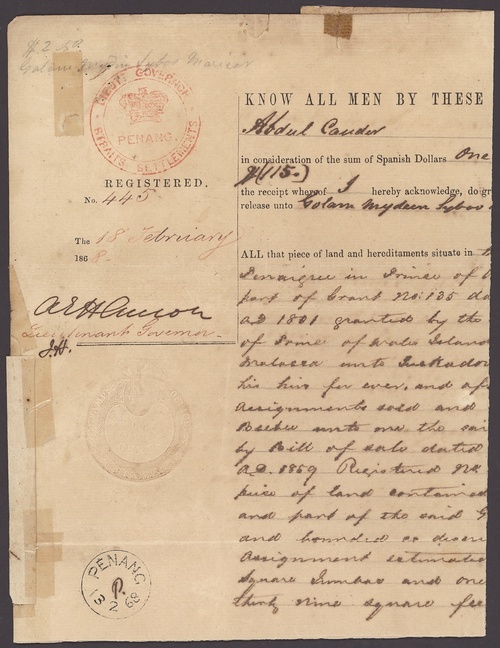 $ 2.50.
Golam Mydin Labor Marican
LIEUT. GOVERNOR
PENANG.
STRAITS SETTLEMENTS
REGISTERED.
No. 445
The 18 February
186 8.
Lieutenant Governor.
J.H.
KNOW ALL MEN BY THESE
Abdul Cauder
in consideration of the sum of Spanish Dollars One
$(115.)
the receipt whereof I hereby acknowledge, do gr
release unto Golam Mydeen
ALL that piece of land and hereditaments situate in
in Prince of
part of Grant No: 135 da
A.D 1801 granted by the
of Prince of Wales Island
Malacca unto
his heirs for ever, and af
Assignments sold and
unto one the sai
by Bill of sale dated
A.D. 1859 Registered No.
piece of land contained
and part of the said G
and bounded as descri
Assignment estimated
Square Jumbas and one
thirty nine square fee
PENANG
P.
13 2 68